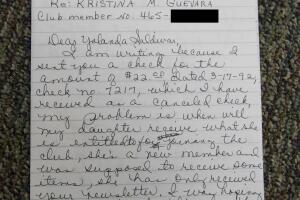 Re: KRISTINA M. GUEVARA
Club member NO. 465-
Dear Yolanda Saldivar,
I am writing because I
sent you a check for the
amount of $22.00 dated 3-17-92,
check no. 7217, which I have
received as a canceled check,
my problem is, when will
my daughter receive what she
is entitled to for joining the
club, she's a new member and
was supposed to receive some
items, she has only received
your newsletter. I was hoping